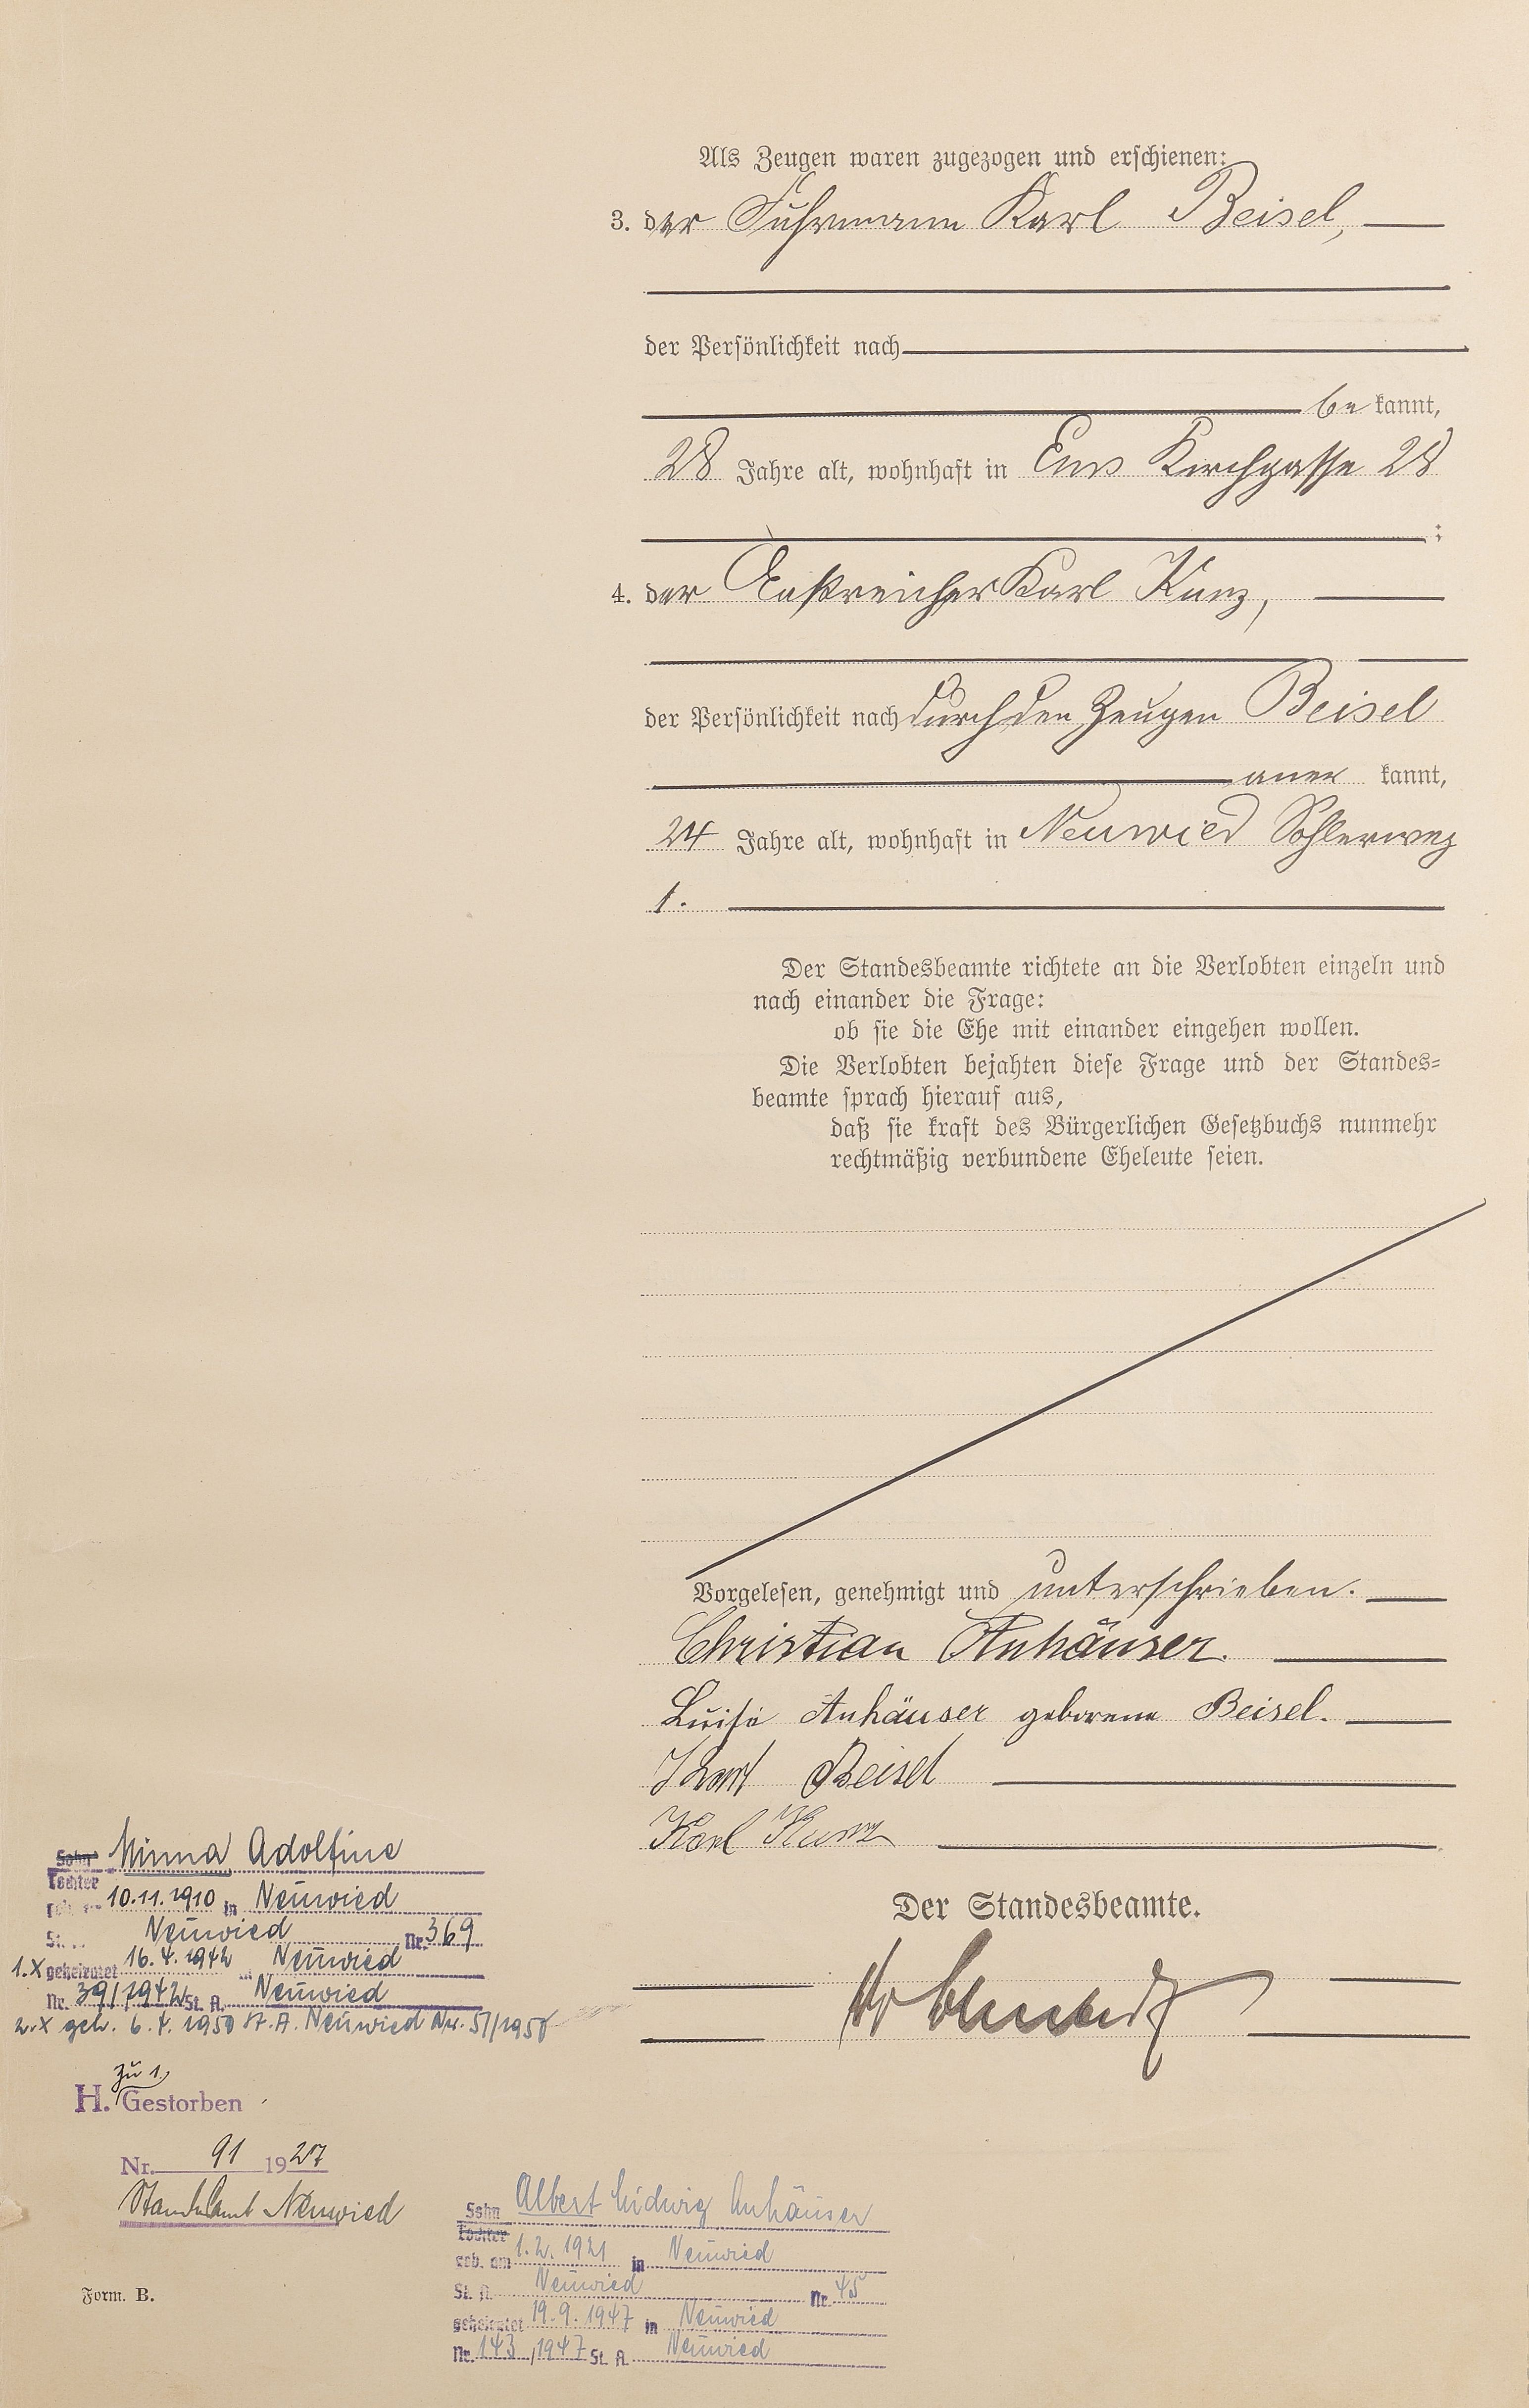 Als Zeugen waren zugezogen und erschienen:
3. der Fuhrmann Karl Beisel,
der Persönlichkeit nach
be kannt,
28 Jahre alt, wohnhaft in Ems Kirchgasse 28
;
4. der Anstreicher Karl Kunz,
der Persönlichkeit nach durch den Zeugen Beisel
aner kannt,
24 Jahre alt, wohnhaft in Neuwied Sohlerweg
1.
Der Standesbeamte richtete an die Verlobten einzeln und
nach einander die Frage:
ob sie die Ehe mit einander eingehen wollen.
Die Verlobten bejahten diese Frage und der Standes-
beamte sprach hierauf aus,
daß sie kraft des Bürgerlichen Gesetzbuchs nunmehr
rechtmäßig verbundene Eheleute seien.
Vorgelesen, genehmigt und unterschrieben.
Christian Anhäuser.
Luise Anhäuser geborene Beisel.
Karl Beisel
Karl Kunz
Der Standesbeamte.
Sohn Minna Adolfine
Tochter
geb. am 10.11.1910 in Neuwied
St. A. Neuwied Nr. 369
1.X geheiratet 16.4.1942 in Neuwied
Nr. 39/1942 St. A. Neuwied
2.X geh. 6.4.1950 St.A. Neuwied Nr. 51/1950
zu 1,
H. Gestorben
Nr. 91 1927
Standesamt Neuwied
Sohn Albert Ludwig Anhäuser
Tochter
geb. am 1.2.1921 in Neuwied
St. A. Neuwied Nr. 45
geheiratet 19.9.1947 in Neuwied
Nr. 143/1947 St. A. Neuwied
Form. B.